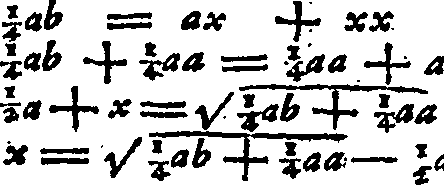 ¼ab = ax + xx
¼ab + ¼aa = ¼aa + a
½a + x = √¼ab + ¼aa
x = √¼ab + ¼aa — ½a